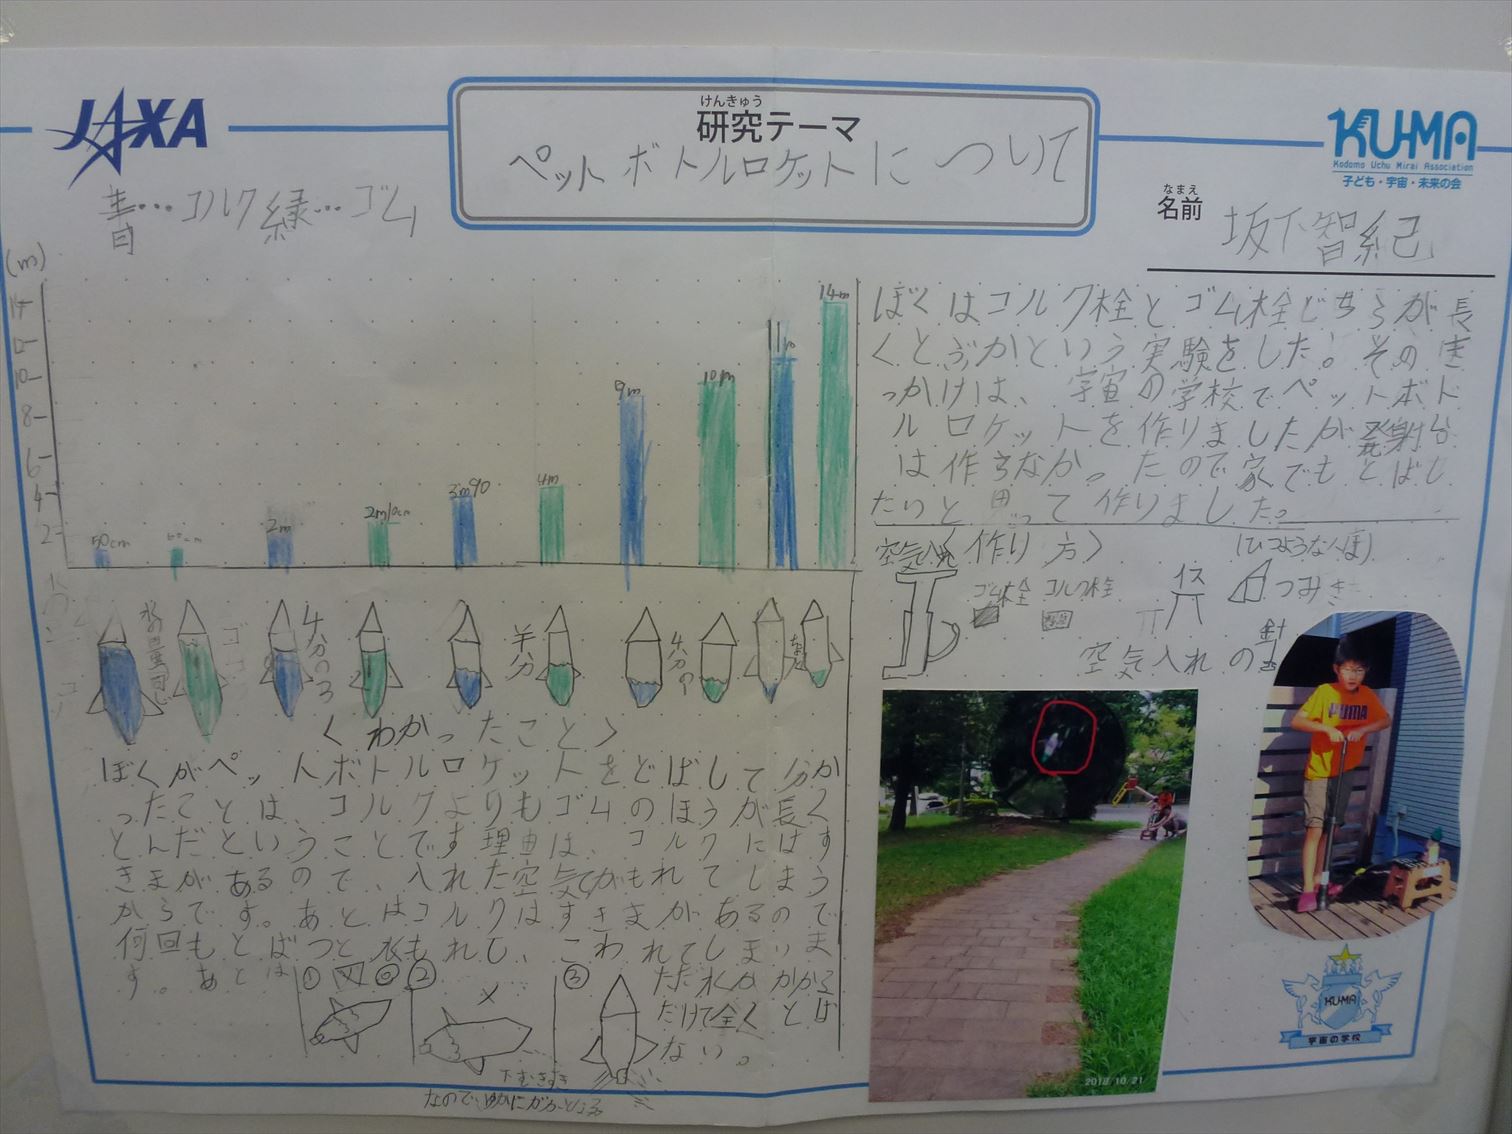 JAXA
けんきゅう
研究テーマ
ペットボトルロケットについて
KU-MA
Kodomo Uchu Mirai Association
子ども・宇宙・未来の会
なまえ
名前
坂下智紀
青…コルク緑…ゴム
(m)
14
12
10
8
6
4
2
50cm
50cm
2m
2m10cm
3m90
4m
9m
10m
11m
14m
水の量同じ
4分の3
半分
4分の1
ぼくはコルク栓とゴム栓どちらが長
くとぶかという実験をした。そのき
っかけは、宇宙の学校でペットボト
ルロケットを作りましたが発射台
は作らなかったので家でもとばし
たいと思って作りました。
空気入れ
〈作り方〉
ゴム栓 コルク栓
イス
つみき
空気入れの針
〈わかったこと〉
ぼくがペットボトルロケットをとばして分か
ったことは、コルクよりもゴムのほうが長く
とんだということです理由は、コルクにはす
きまがあるので、入れた空気がもれてしまう
からです。あとはコルクはすきまがあるので
何回もとばすと水もれし、こわれてしまいま
す。あとは
①
②
③
下むきすぎ
なのでゆかにぶつかる
ただ水がかかる
だけで全くとば
ない。
2018/10/21
KU-MA
宇宙の学校
PUMA